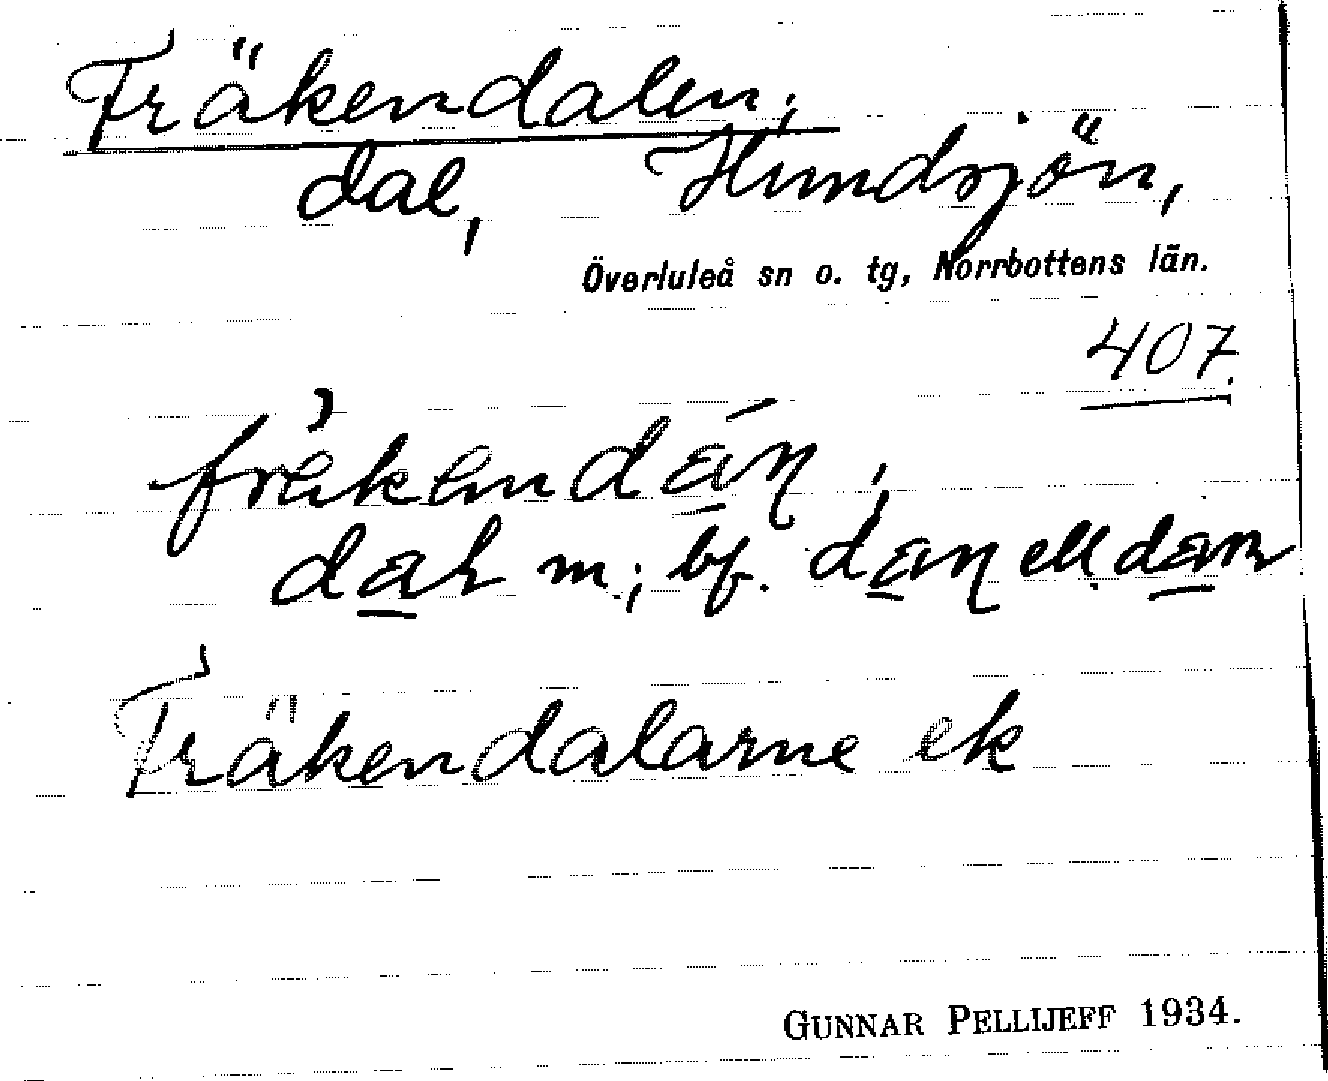 Fräkendalen,
dal, Hundsjön,
Överluleå sn o. tg, Norrbottens län.
407.
fräkendáṇ,
daḷ m; bf. daṇ ell. dam
Fräkendalarne ek
GUNNAR PELLIJEFF 1934.